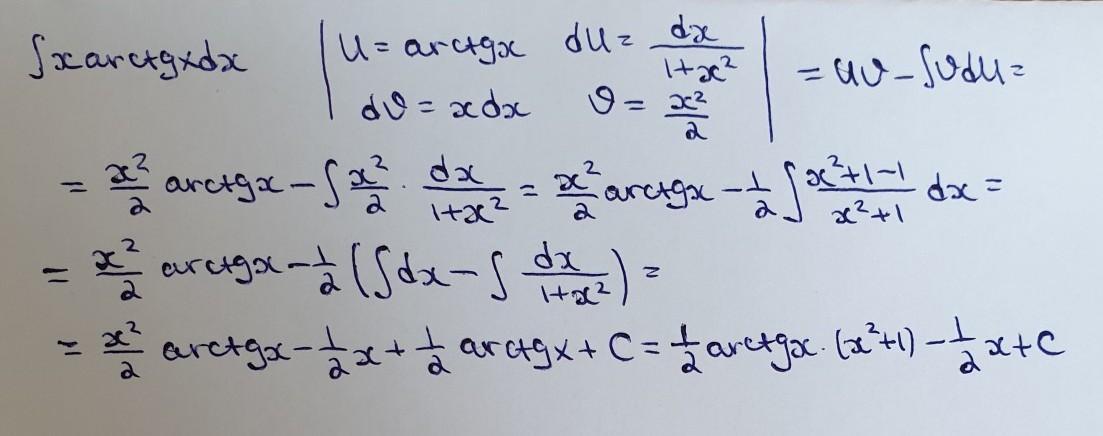 ∫x arctgx dx | u = arctgx du = dx/(1+x²) | = uv − ∫vdu =
| dv = xdx v = x²/2 |
= x²/2 arctgx − ∫ x²/2 · dx/(1+x²) = x²/2 arctgx − 1/2 ∫ (x²+1−1)/(x²+1) dx =
= x²/2 arctgx − 1/2 (∫dx − ∫ dx/(1+x²)) =
= x²/2 arctgx − 1/2 x + 1/2 arctgx + C = 1/2 arctgx · (x²+1) − 1/2 x + C